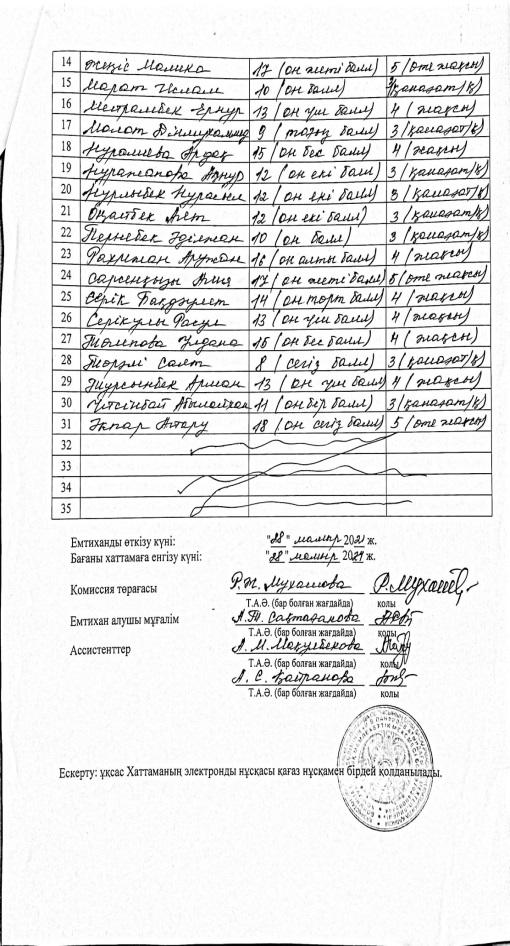 14 Жеңіс Малика 17 (он жеті балл) 5 (өте жақсы)
15 Марат Ислам 10 (он балл) 3 (қанағат/қ)
16 Мейрамбек Ернур 13 (он үш балл) 4 (жақсы)
17 Молот Дінмухаммед 9 (тоғыз балл) 3 (қанағат/қ)
18 Нуралиева Ардақ 15 (он бес балл) 4 (жақсы)
19 Айнур 12 (он екі балл) 3 (қанағат/қ)
20 Нурлыбек 12 (он екі балл) 3 (қанағат/қ)
21 12 (он екі балл) 3 (қанағат/қ)
22 Пернебек Әділжан 10 (он балл) 3 (қанағат/қ)
23 Рахижан Аружан 16 (он алты балл) 4 (жақсы)
24 Сарсенқызы Алия 17 (он жеті балл) 5 (өте жақсы)
25 Серік Бақдәулет 14 (он төрт балл) 4 (жақсы)
26 Серікұлы Расул 13 (он үш балл) 4 (жақсы)
27 Улдана 15 (он бес балл) 4 (жақсы)
28 Саят 8 (сегіз балл) 3 (қанағат/қ)
29 Турсынбек Арман 13 (он үш балл) 4 (жақсы)
30 Абылайхан 11 (он бір балл) 3 (қанағат/қ)
31 Әкпар Айару 18 (он сегіз балл) 5 (өте жақсы)
32
33
34
35
Емтиханды өткізу күні: "28" мамыр 2021 ж.
Бағаны хаттамаға енгізу күні: "28" мамыр 2021 ж.
Комиссия төрағасы Р.Т. Мухашова
Т.А.Ә. (бар болған жағдайда) қолы
Емтихан алушы мұғалім А.Т. Сақтағанова
Т.А.Ә. (бар болған жағдайда) қолы
Ассистенттер А.М. Мақулбекова
Т.А.Ә. (бар болған жағдайда) қолы
А.С. Қайранова
Т.А.Ә. (бар болған жағдайда) қолы
Ескерту: ұқсас Хаттаманың электронды нұсқасы қағаз нұсқамен бірдей қолданылады.